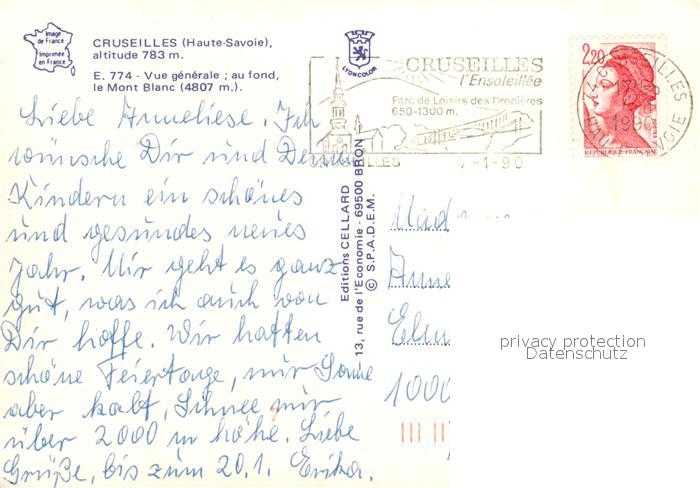 Image
de France
Imprimée
en France
CRUSEILLES (Haute-Savoie),
altitude 783 m.
E. 774 - Vue générale ; au fond,
le Mont Blanc (4807 m.).
LYONCOLOR
CRUSEILLES
l'Ensoleillée
Parc de Loisirs des Dronières
650-1300 m.
4-1-90
2,20
1990
REPUBLIQUE FRANÇAISE
Liebe Anneliese. Ich
wünsche Dir und Deinen
Kindern ein schönes
und gesundes neues
Jahr. Mir geht es ganz
gut, was ich auch von
Dir hoffe. Wir hatten
schöne Feiertage, nur Sonne
aber kalt, Schnee nur
über 2000 m höhe. Liebe
Grüße, bis zum 20.1. Erika.
Editions CELLARD
13, rue de l'Economie - 69500 BRON
© S.P.A.D.E.M.
Mad
Anne
Elm
1000
privacy protection
Datenschutz